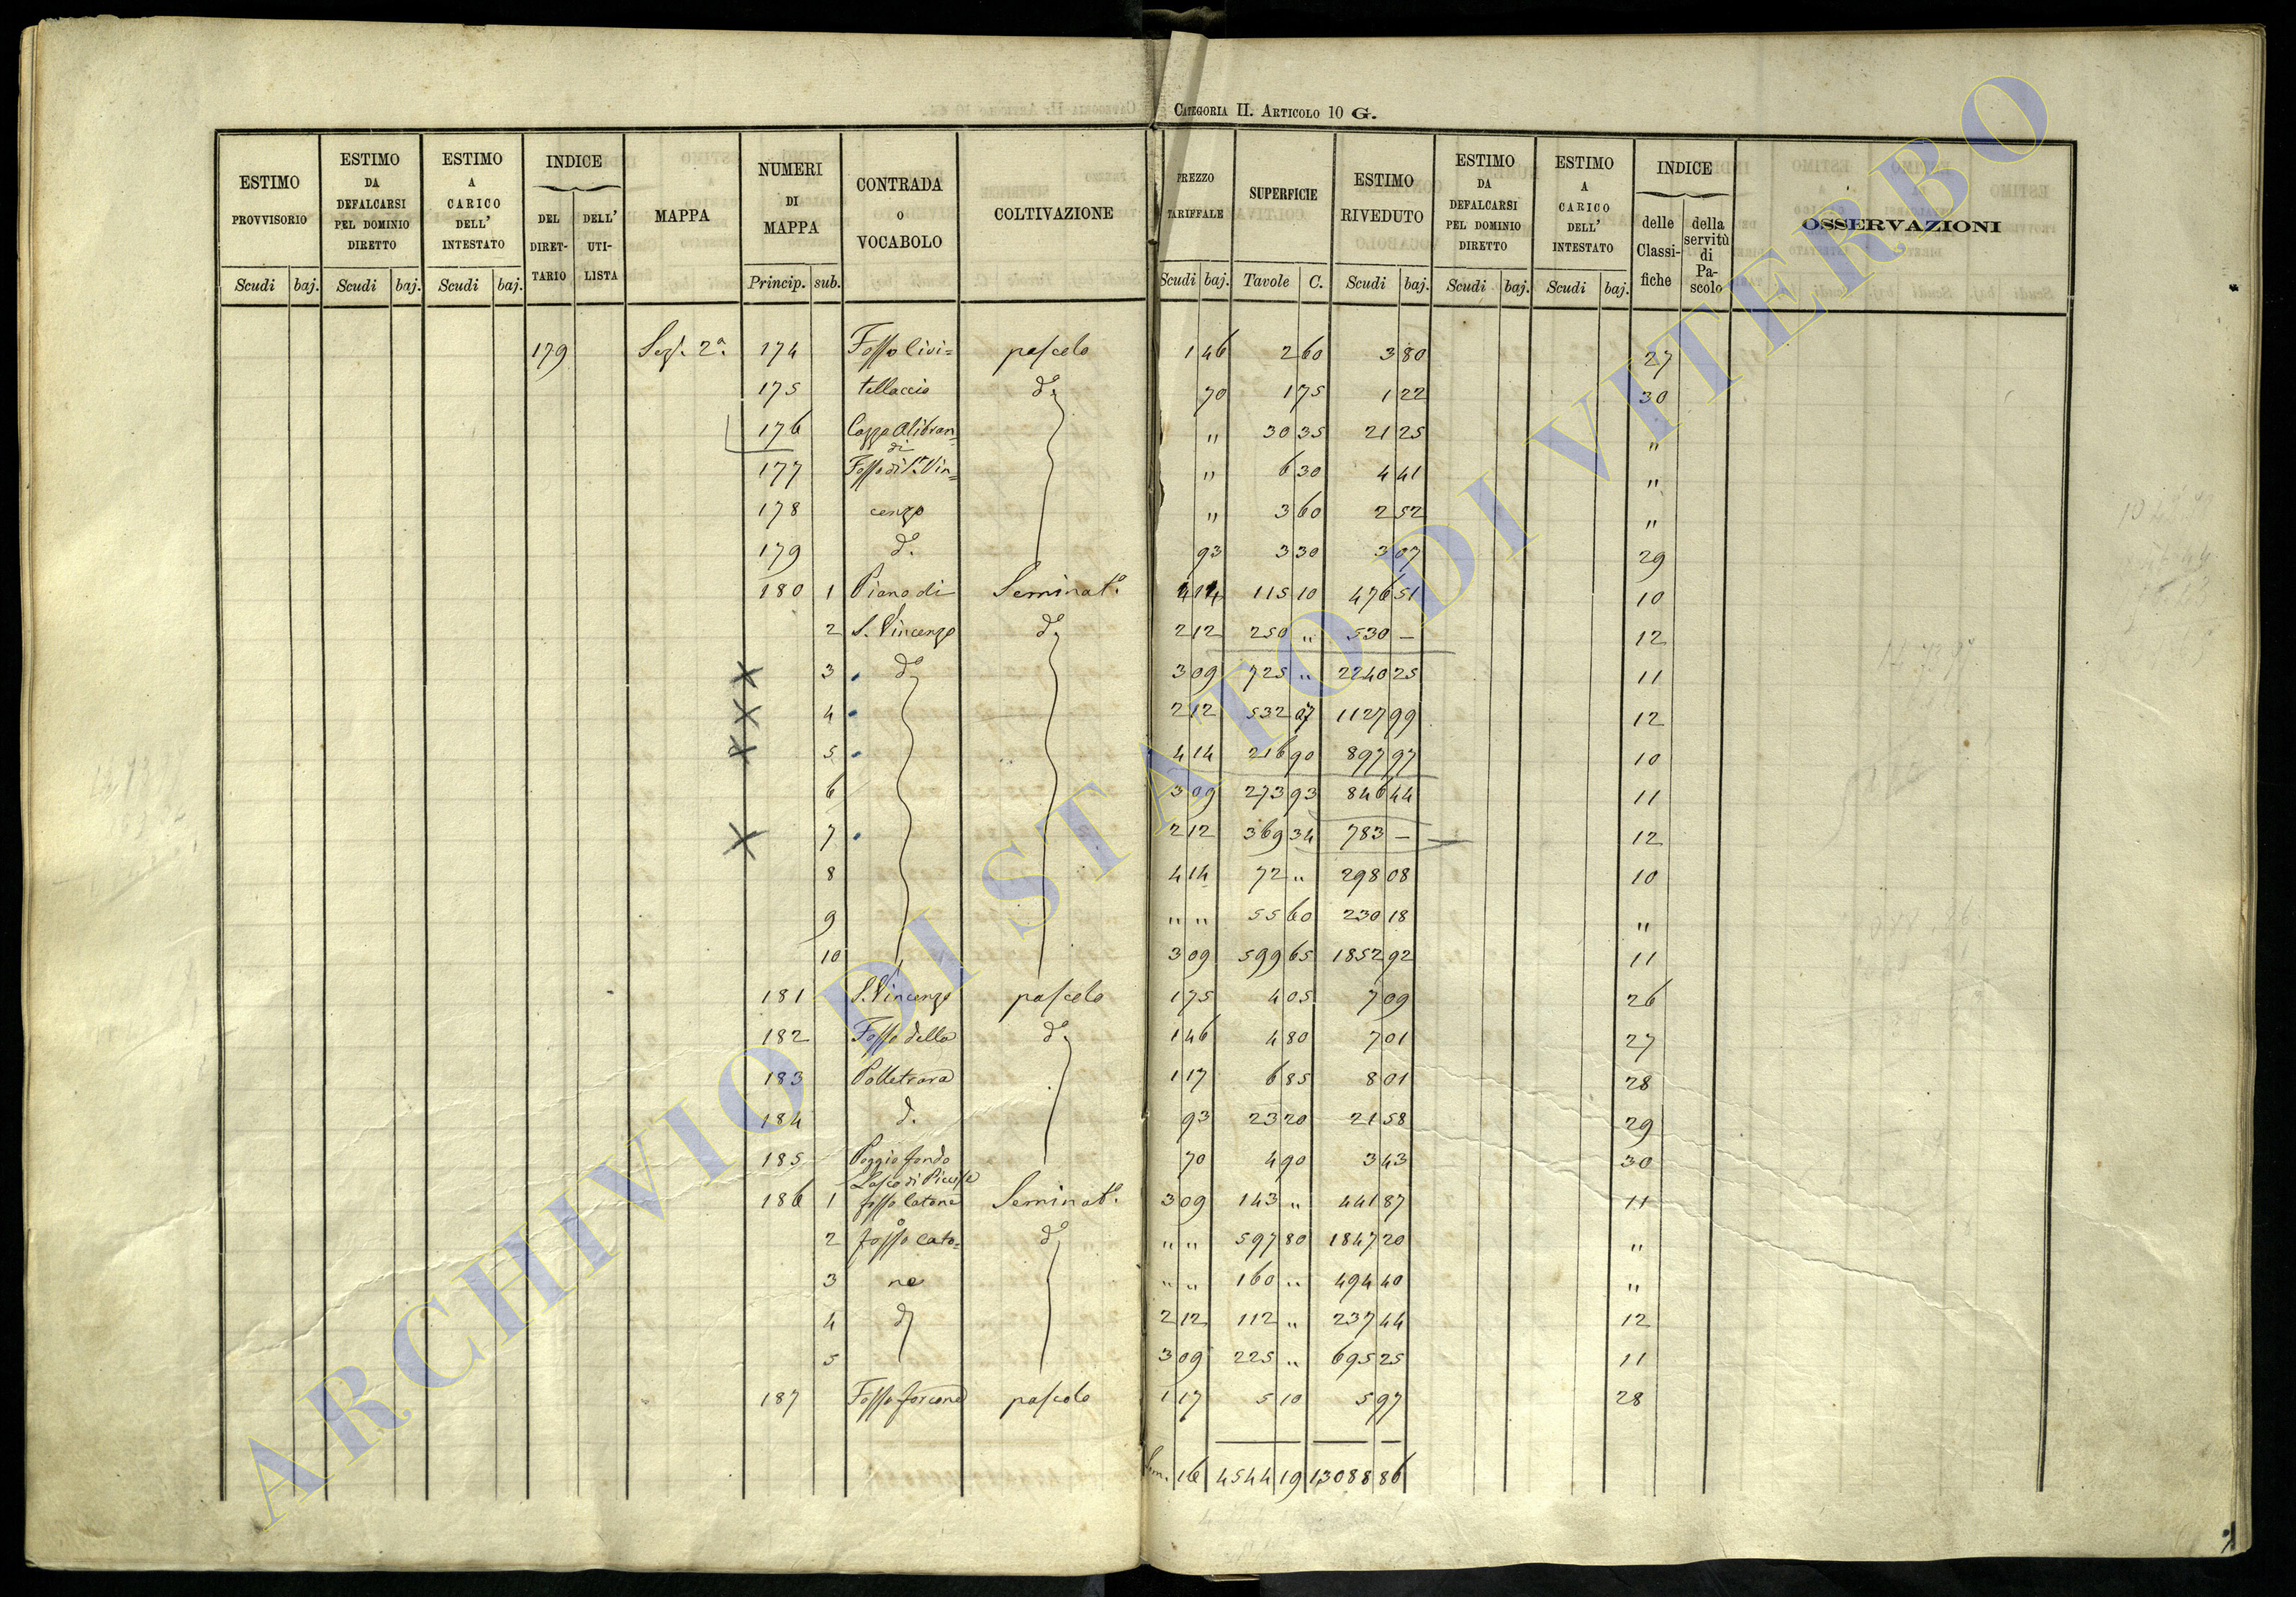 CATEGORIA II. ARTICOLO 10 G.
ESTIMO PROVVISORIO Scudi baj. ESTIMO DA DEFALCARSI PEL DOMINIO DIRETTO Scudi baj. ESTIMO A CARICO DELL' INTESTATO Scudi baj. INDICE DEL DIRET-TARIO DELL' UTI-LISTA MAPPA NUMERI DI MAPPA Princip. sub. CONTRADA O VOCABOLO COLTIVAZIONE PREZZO TARIFFALE Scudi baj. SUPERFICIE Tavole C. ESTIMO RIVEDUTO Scudi baj. ESTIMO DA DEFALCARSI PEL DOMINIO DIRETTO Scudi baj. ESTIMO A CARICO DELL' INTESTATO Scudi baj. INDICE delle Classi-fiche della servitù di Pa-scolo OSSERVAZIONI
179 Sez. 2a. 174 Fosso Civi= pascolo 1 46 2 60 3 80 27
175 tellaccio do. 70 1 75 1 22 30
176 Cozzo Alibran= di " 30 35 21 25 "
177 Fosso di S. Vin= " 6 30 4 41 "
178 cenzo " 3 60 2 52 "
179 do. 93 3 30 3 07 29
180 1 Piano di Seminato. 4 14 115 10 476 51 10
2 S. Vincenzo do 2 12 250 " 530 – 12
3 do 3 09 725 " 2240 25 11
4 2 12 532 07 1127 99 12
5 4 14 216 90 897 97 10
6 3 09 273 93 846 44 11
7 2 12 369 34 783 – 12
8 4 14 72 " 298 08 10
9 " " 55 60 230 18 "
10 3 09 599 65 1852 92 11
181 S. Vincenzo pascolo 1 75 4 05 7 09 26
182 Fosso della do. 1 46 4 80 7 01 27
183 Polletrara 1 17 6 85 8 01 28
184 do. 93 23 20 21 58 29
185 Poggio tondo 70 4 90 3 43 30
186 1 fosso Catone Seminato. 3 09 143 " 441 87 11
2 fosso Cato= do " " 597 80 1847 20 "
3 ne " " 160 " 494 40 "
4 do 2 12 112 " 237 44 12
5 3 09 225 " 695 25 11
187 Fosso forcone pascolo 1 17 5 10 5 97 28
16 4544 19 13088 86
ARCHIVIO DI STATO DI VITERBO